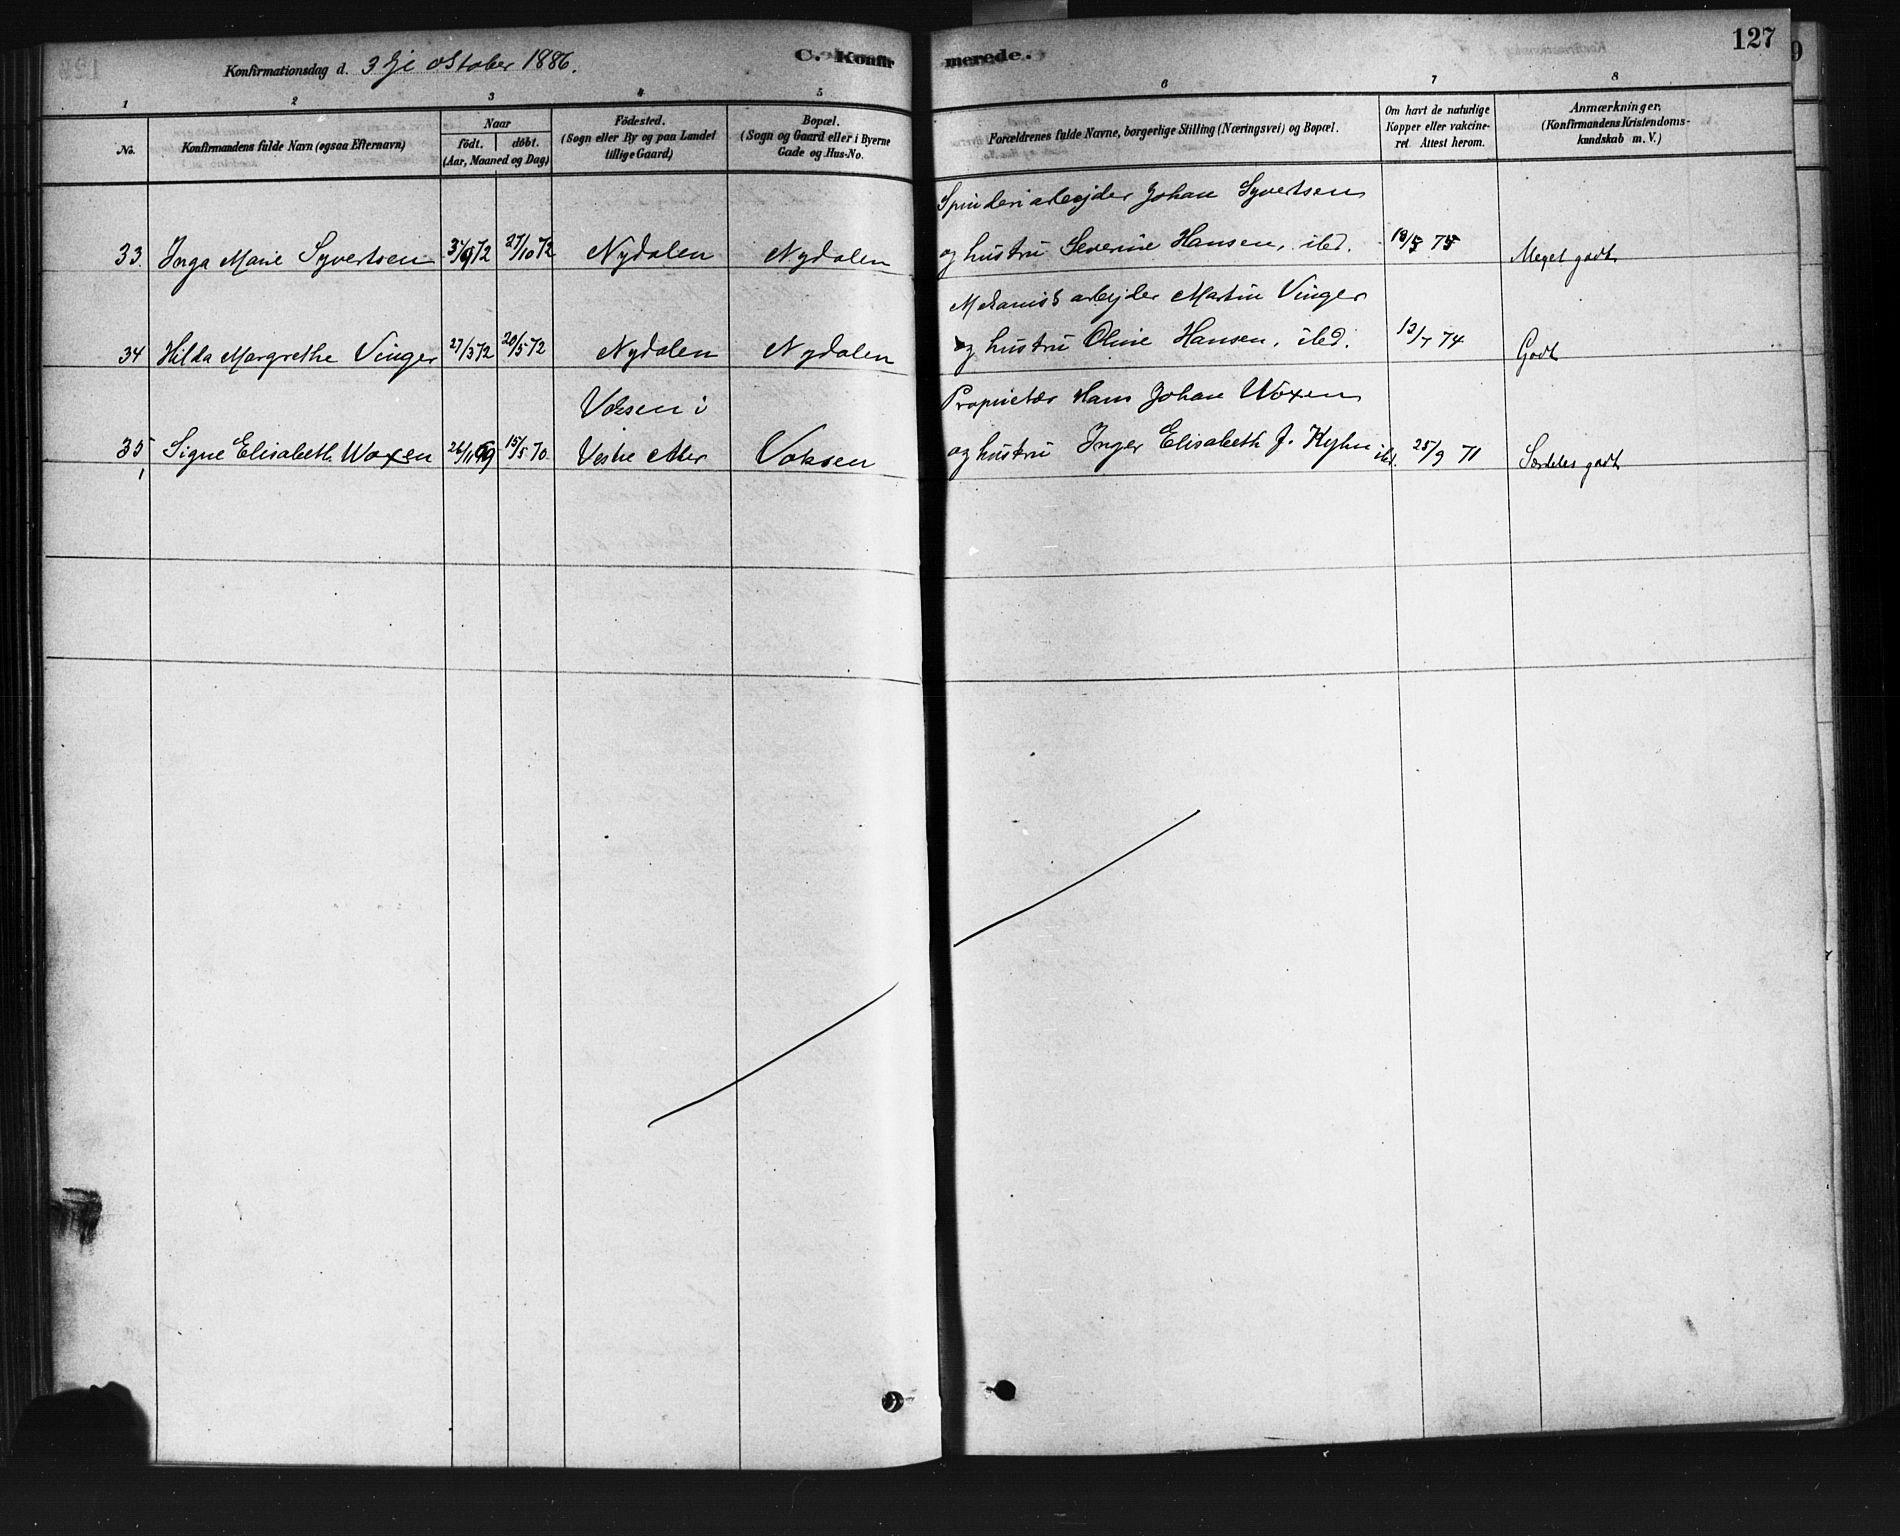 Konfirmationsdag d. 3dje oktober 1886.
C. Konfirmerede.
127
1 2 3 4 5 6 7 8
No.
Konfirmandens fulde Navn (ogsaa Efternavn)
Naar
födt. döbt.
(Aar, Maaned og Dag)
Födested.
(Sogn eller By og paa Landet
tillige Gaard)
Bopæl.
(Sogn og Gaard eller i Byerne
Gade og Hus-No.
Forældrenes fulde Navne, borgerlige Stilling (Næringsvei) og Bopæl.
Om havt de naturlige
Kopper eller vakcine-
ret. Attest herom.
Anmærkninger.
(Konfirmandens Kristendoms-
kundskab m. V.)
Spinderiarbejder Johan Syvertsen
33. Inga Marie Syvertsen 27/10 72 Nydalen Nydalen og hustru Severine Hansen, ibd. Meget godt
Mekanisk arbejder Martin Vinger
34 Hilda Margrethe Vinger 27/3 72 20/5 72 Nydalen Nydalen og hustru Oline Hansen, ibd. 13/7 74 Godt
Voksen i Proprietær Hans Johan Woxen
35 Signe Elisabeth Woxen 26/11 69 15/5 70 Vestre Aker Voksen og hustru Inger Elisabeth J. Kyhn ibd. 25/9 71 Særdeles godt